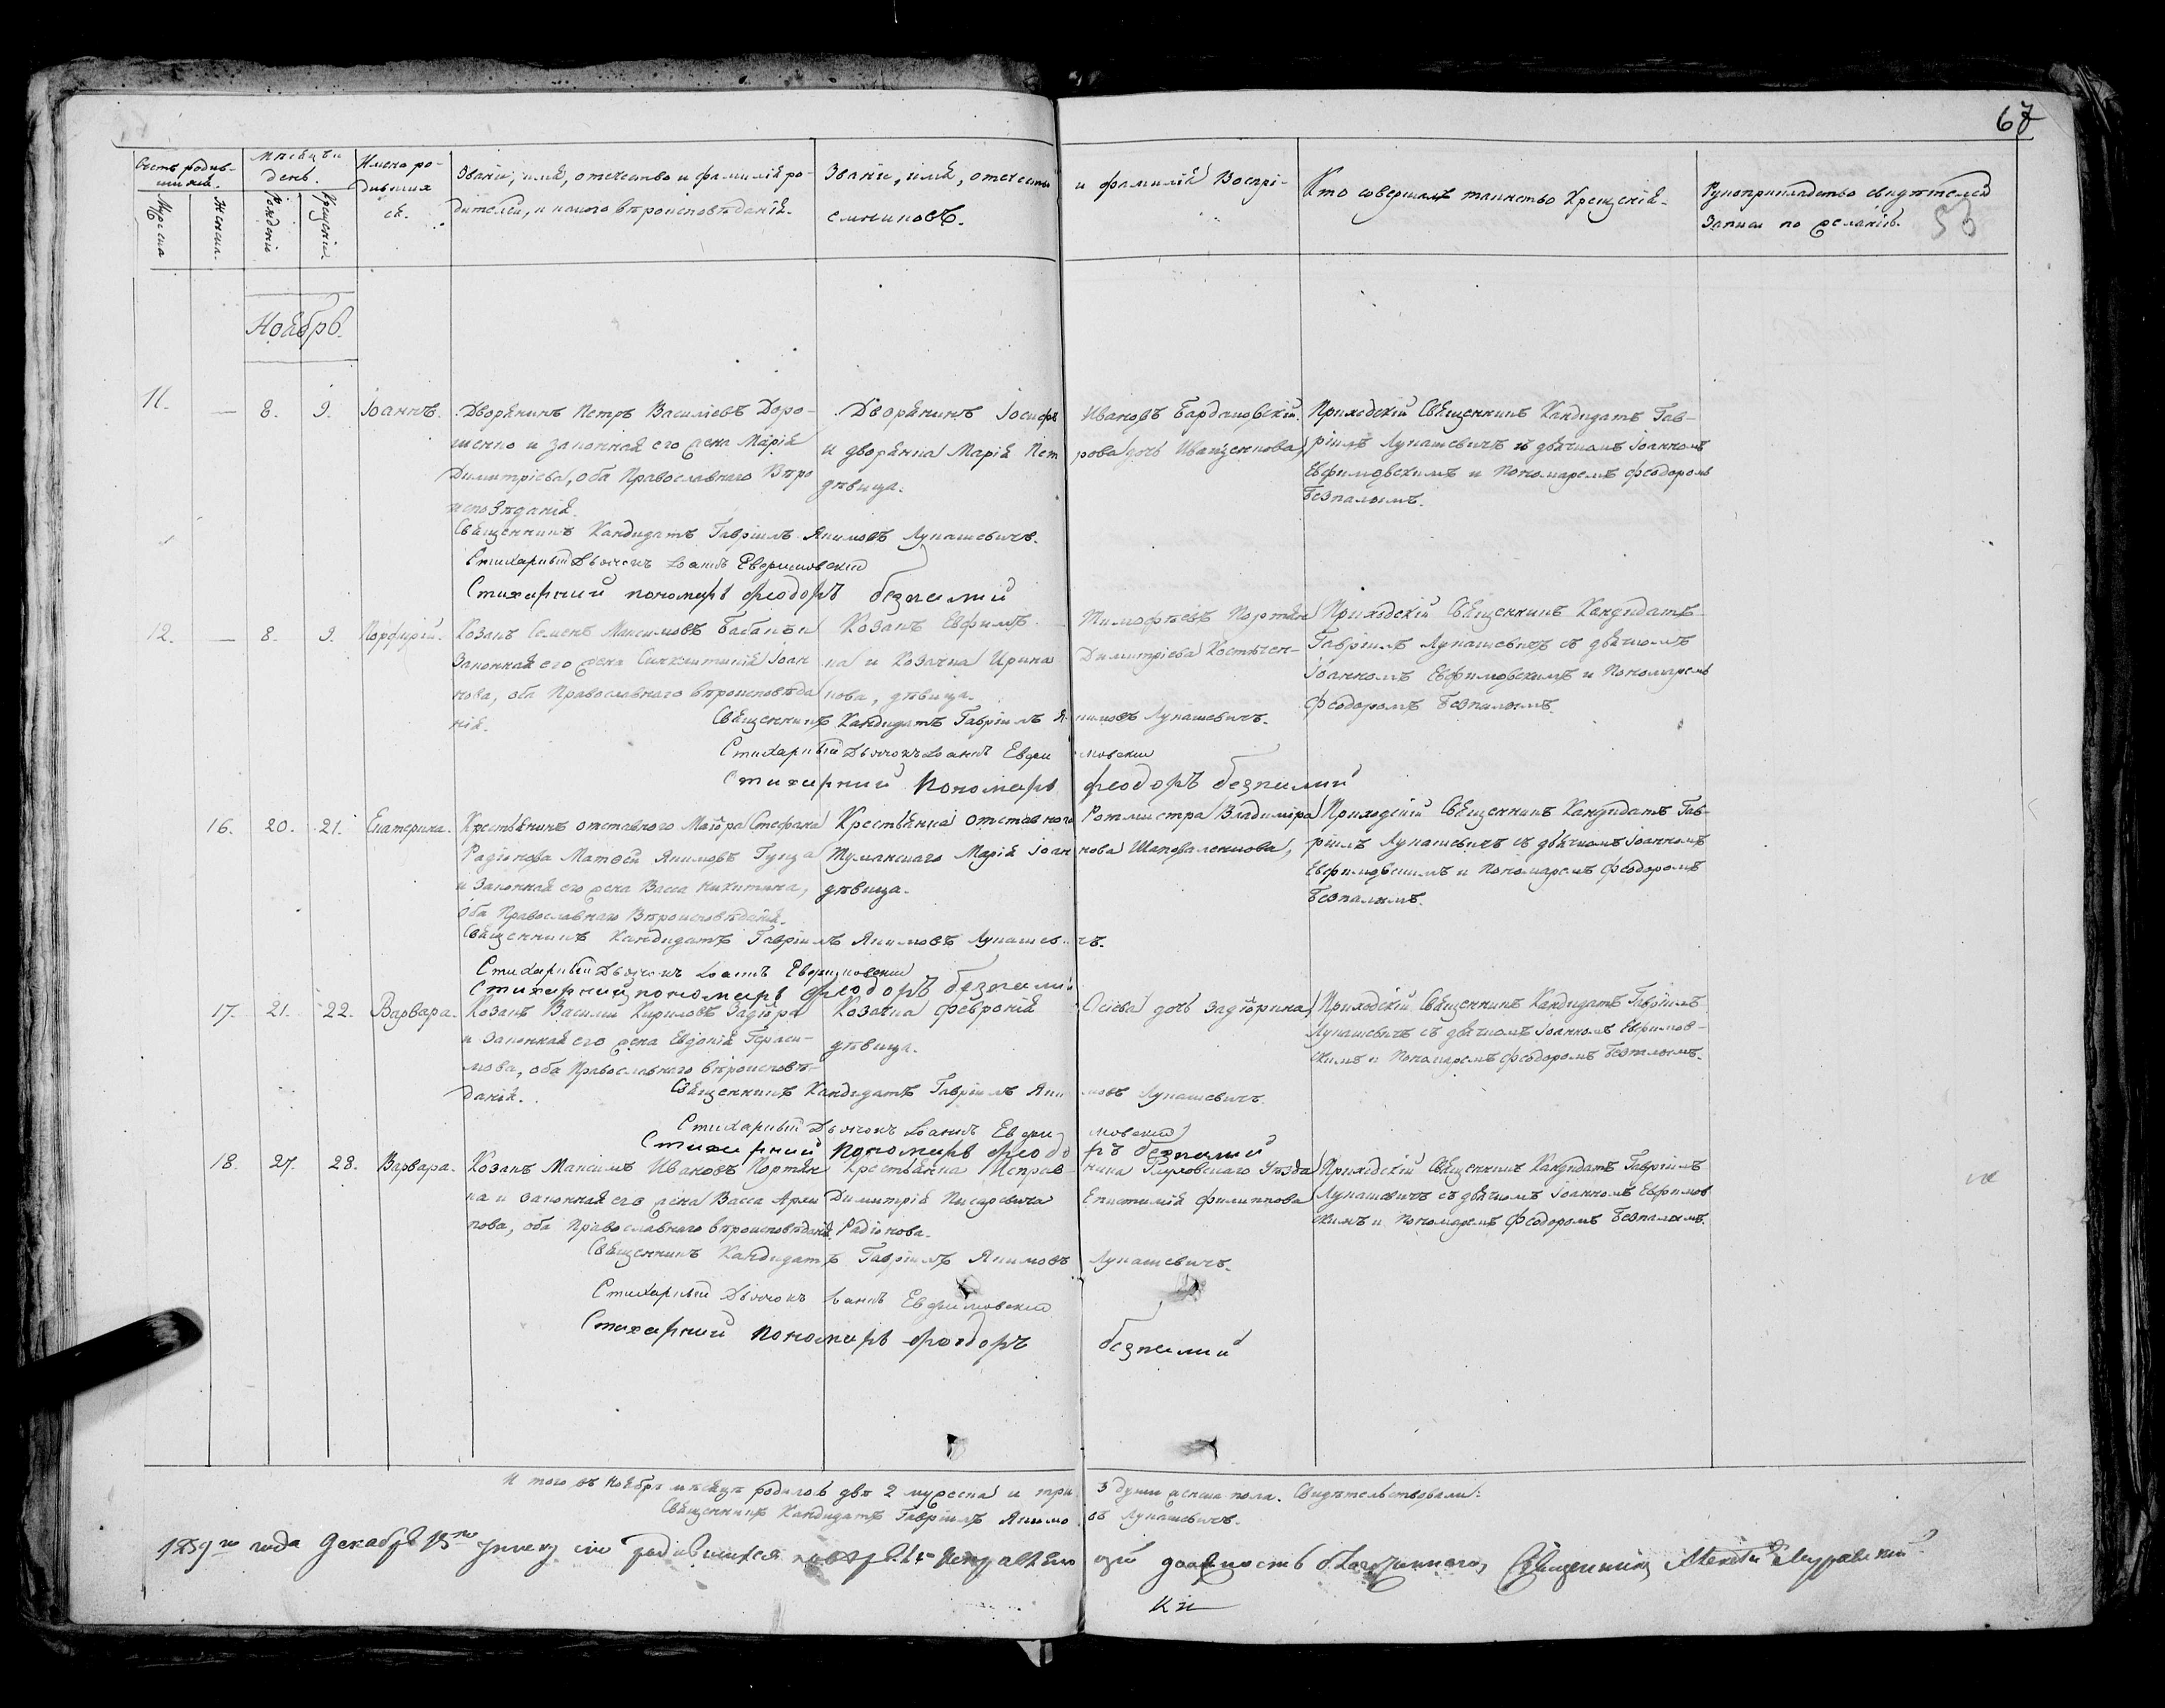 67
Счетъ родив-
шихся.
Мужеска
Женск.
Мѣсяцъ и
день.
Рожденія
Крещенія.
Имена ро-
дивших
ся.
Званіе, имя, отечество и фамилія ро-
дителей, и какого вѣроисповѣданія.
Званіе, имя, отечество и фамилія Воспрі-
емниковъ.
Кто совершалъ таинство Крещенія.
Рукоприкладство свидѣтелей
записи по желанію.
53
Ноябрь.
11. — 8. 9. Іоаннъ.
Дворянинъ Петръ Василіевъ Доро-
шенко и законная его жена Марія
Димитріева, оба Православнаго Вѣро
исповѣданія.
Дворянинъ Іосифъ Ивановъ Бардаковскій
и дворянка Марія Петрова дочь Иващенкова,
дѣвица.
Приходскій Священникъ Кандидатъ Гав-
ріилъ Лукашевичъ съ дьячкомъ Іоанномъ
Евфимовскимъ и Пономаремъ Феодоромъ
Безпалымъ.
Священникъ Кандидатъ Гавріилъ Якимовъ Лукашевичъ.
Стихарный Дьячокъ Іоаннъ Евфимовский
Стихарний пономарь Феодоръ безпалий
12. — 8. 9. Порфирій.
Козакъ Семенъ Максимовъ Бабакъ и
Законная его жена Синклитикія Іоан
нова, оба Православнаго вѣроисповѣда
нія.
Козакъ Евфимъ Тимофѣевъ Портян
ка и Козачка Ирина Димитріева Костючен-
кова, дѣвица.
Приходскій Священникъ Кандидатъ
Гавріилъ Лукашевичъ съ дьячкомъ
Іоанномъ Евфимовскимъ и Пономаремъ
Феодоромъ Безпалымъ.
Священникъ Кандидатъ Гавріилъ Якимовъ Лукашевичъ.
Стихарный Дьячокъ Іоаннъ Евфимовский
Стихарний Пономарь феодоръ безпалий
16. 20. 21. Екатерина.
Крестьянинъ отставного Маіора Стефана
Радіонова Матѳей Якимовъ Гунда
и Законная его жена Васса Никитина,
оба Православнаго Вѣроисповѣданія.
Крестьянка отставного Ротмистра Владиміра
Туманскаго Марія Іоаннова Шаповаленкова,
дѣвица.
Приходскій Священникъ Кандидатъ Гав-
ріилъ Лукашевичъ съ дьячкомъ Іоанномъ
Евфимовскимъ и Пономаремъ Феодоромъ
Безпалымъ.
Священникъ Кандидатъ Гавріилъ Якимовъ Лукашевичъ.
Стихарный Дьячокъ Іоаннъ Евфимовский
Стихарний пономарь феодоръ безпалий
17. 21. 22. Варвара.
Козакъ Василій Кириловъ Задюра
и Законная его жена Евдокія Гераси-
мова, оба Православнаго вѣроисповѣ-
данія.
Козачка Февронія Осіева дочь Задюрина,
дѣвица.
Приходскій Священникъ Кандидатъ Гавріилъ
Лукашевичъ съ дьячкомъ Іоанномъ Евфимов-
скимъ и Пономаремъ Феодоромъ Безпалымъ.
Священникъ Кандидатъ Гавріилъ Якимовъ Лукашевичъ.
Стихарный Дьячокъ Іоаннъ Евфимовский
Стихарний Пономарь феодоръ безпалий
18. 27. 28. Варвара.
Козакъ Максимъ Ивановъ Портян
ка и законная его жена Васса Архи
пова, оба Православнаго вѣроисповѣданія.
Крестьянка Исправника Глуховскаго Уѣзда
Димитрія Писаревича Епистимія Филиппова
Радіонова.
Приходскій Священникъ Кандидатъ Гавріилъ
Лукашевичъ съ дьячкомъ Іоанномъ Евфимов
скимъ и Пономаремъ Феодоромъ Безпалымъ.
Священникъ Кандидатъ Гавріилъ Якимовъ Лукашевичъ.
Стихарный Дьячокъ Іоаннъ Евфимовский
Стихарний Пономарь феодоръ безпалий
И того въ Ноябрѣ мѣсяцѣ родилось двѣ 2 мужеска и три 3 души женска пола. Свидѣтельствовали:
Священникъ Кандидатъ Гавріилъ Якимовъ Лукашевичъ.
1859го года Декабря 13го родившихся должность Благочиннаго, Священникъ Алексѣй Муравский